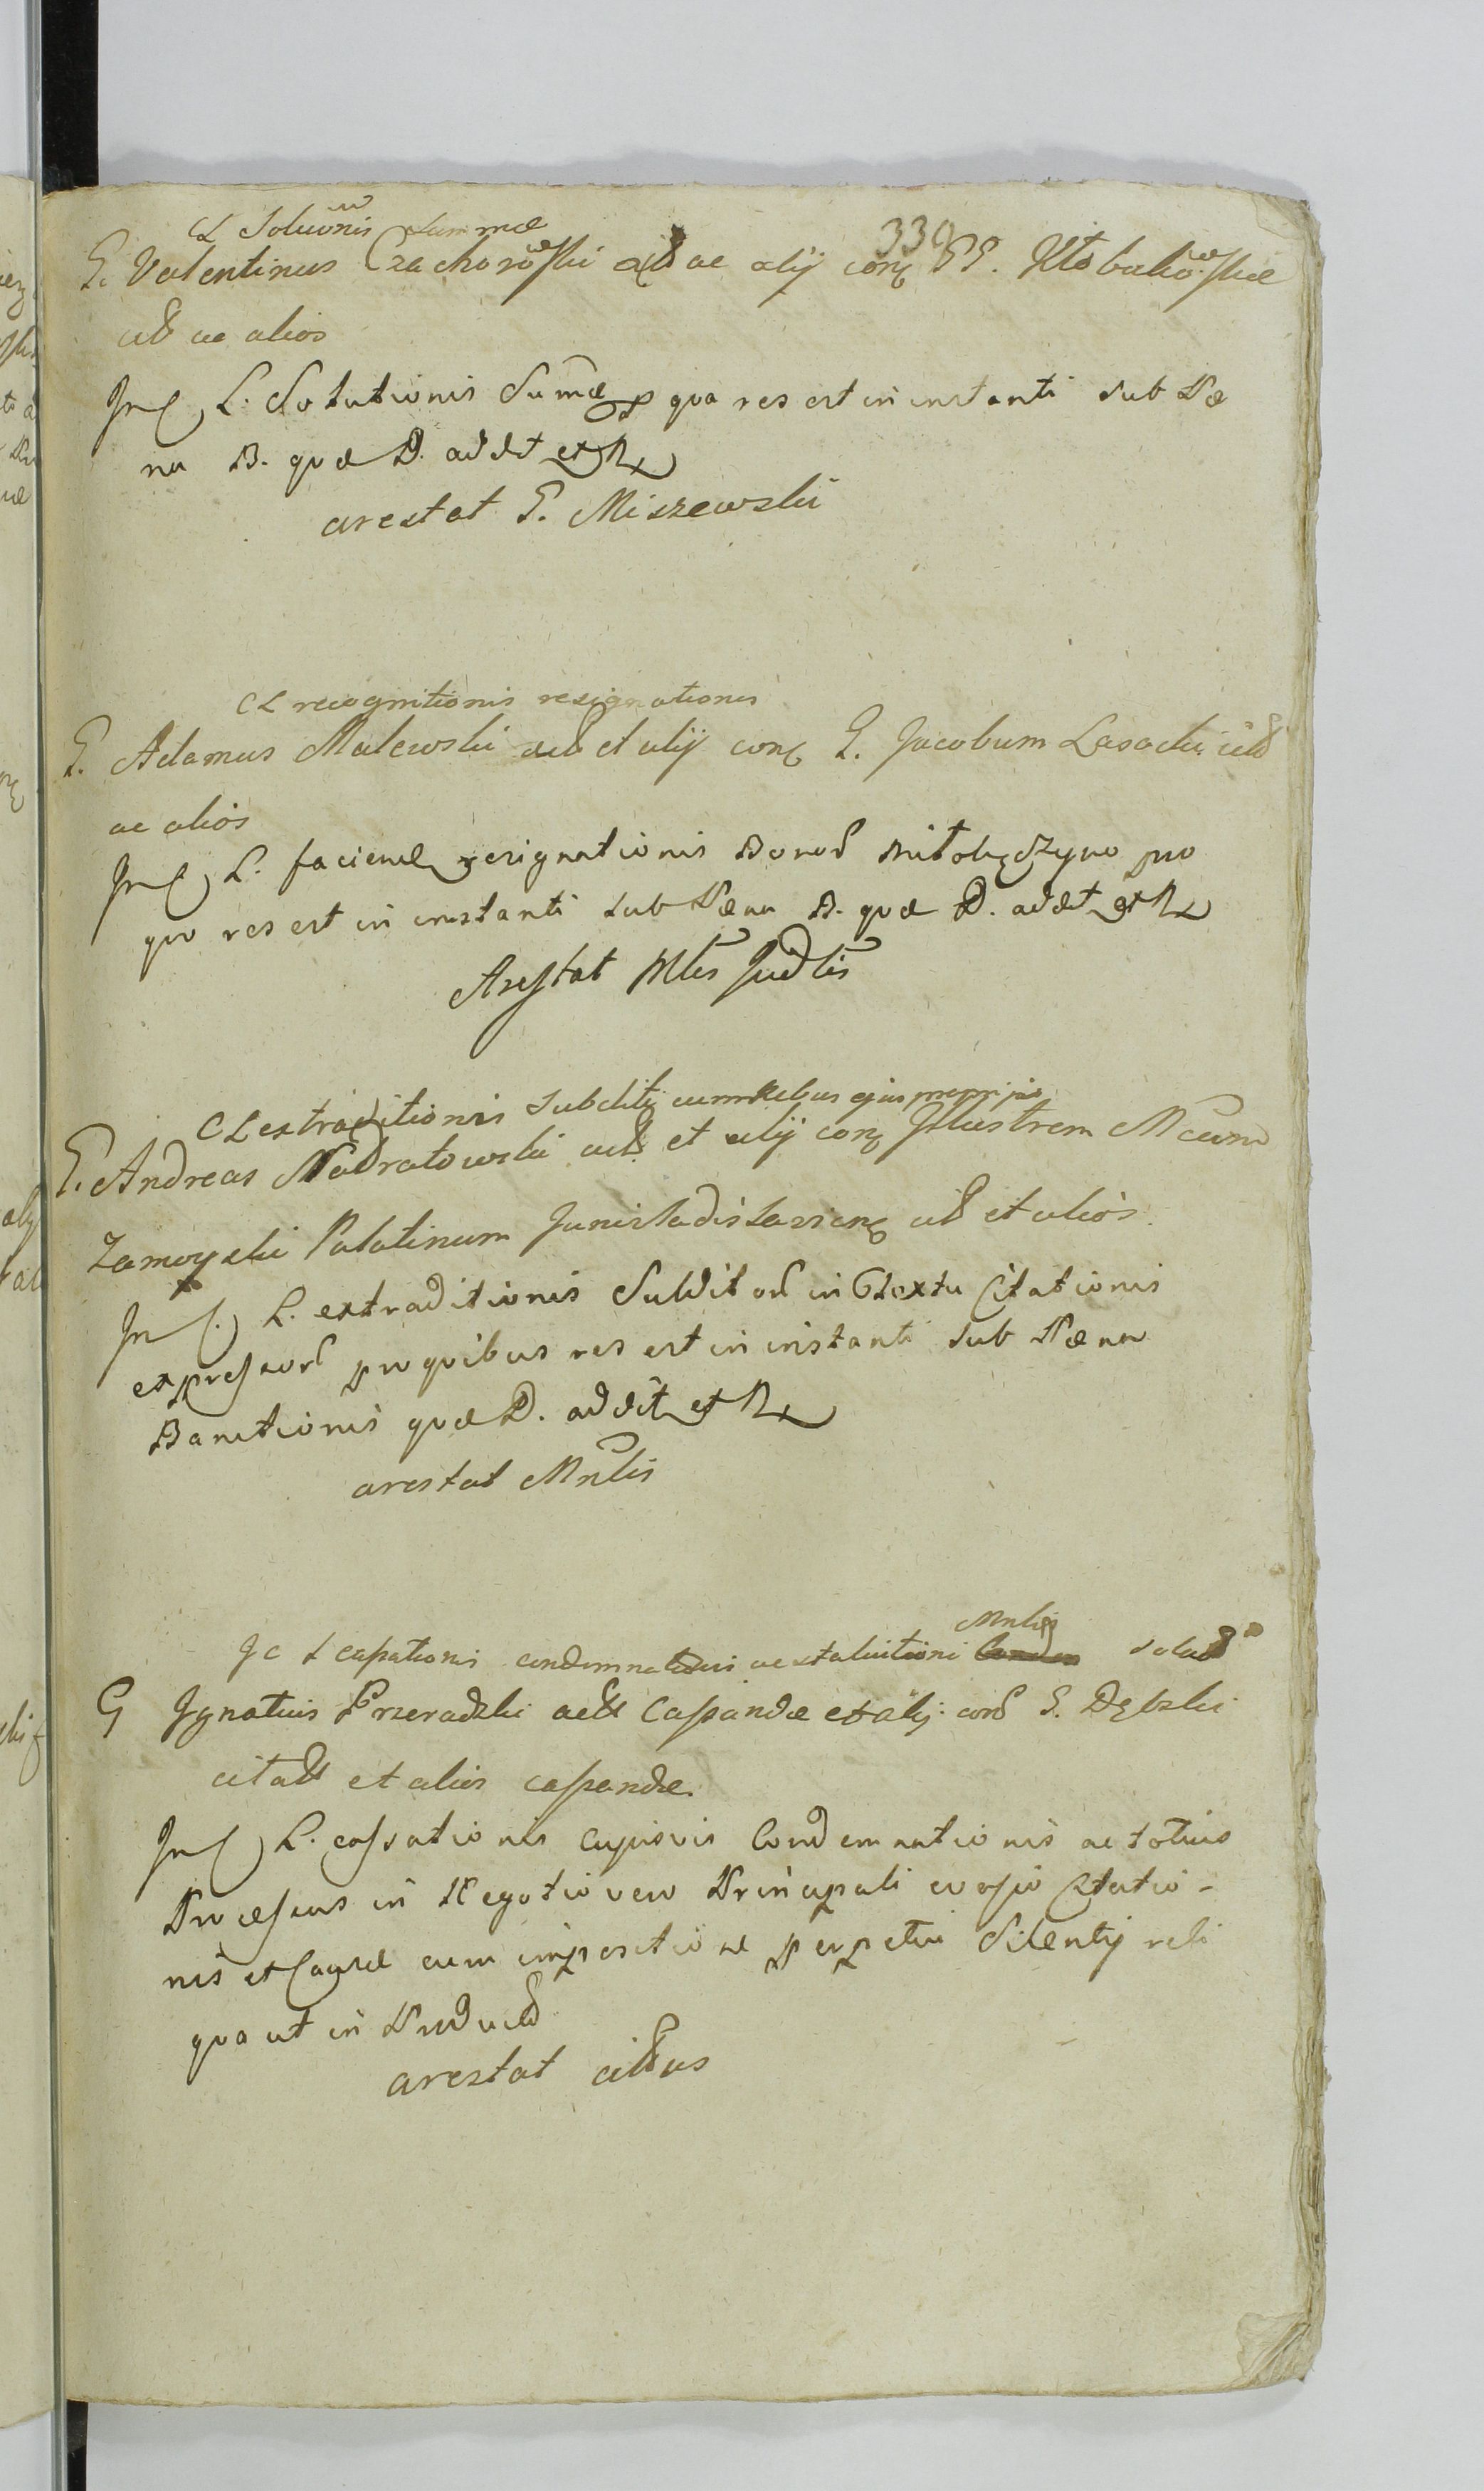 CL Solutionis Summæ
339
G. Valentinus Czachorowski act ac alij conq GG. Kłobukowskie
cit ac alios
In C L. Solutionis Sumæ p qua res est in instanti sub Pæ
na B. quæ D. addit et R
arestat G. Miszewski
CL recognitionis resignationis
G. Adamus Malewski act et alij conq G. Jacobum Lasocki cit
ac alios
In C L. faciend resignationis Bonor Mitołęczyno pro
quo res est in instanti sub Pæna B. quæ D. addit et R
Arestat Mtis Judlis
CL extraditionis Subditi cum Rebus ejus proprijs
G. Andreas Nadratowski act et alij conq Illustrem Mcum
Zamoyski Palatinum Juniwladislavienq cit et alios
In C. L. extraditionis Subditor in Ctextu Citationis
expressor pro quibus res est in instanti sub Pæna
Banitionis quæ D. addit et R
arestat Mnlis
Mnlis
JC L cassationis condemnationis ac statuitioni solut
G Ignatius Przeradzki act Cassandæ et alij cond G. Dębski
citatt et alios cassandæ
In C L. cassationis cujusvis Condemnationis ac totius
Processus in Negotio vero Principali evasio Citatio-
nis et Causæ cum impositione perpetui Silentij reli
qua ut in Producd
arestat cittus